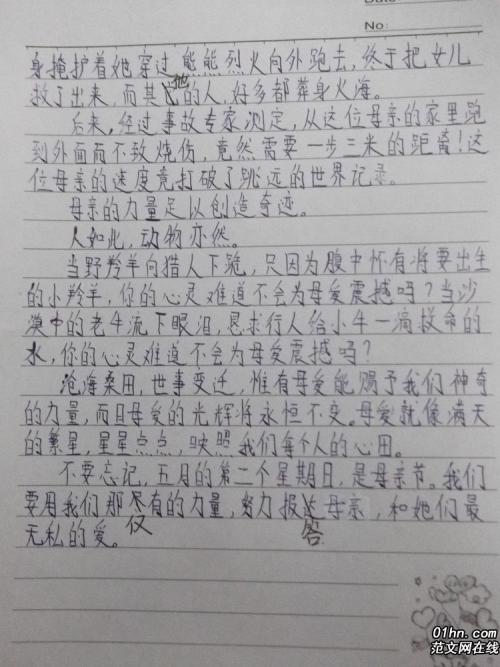 Date
No:
身掩护着她穿过熊熊烈火向外跑去,终于把女儿
救了出来,而其他的人,好多都葬身火海。
后来,经过事故专家测定,从这位母亲的家里跑
到外面而不致烧伤,竟然需要一步三米的距离!这
位母亲的速度竟打破了跳远的世界记录。
母亲的力量足以创造奇迹。
人如此,动物亦然。
当野羚羊向猎人下跪,只因为腹中怀有将要出生
的小羚羊,你的心灵难道不会为母爱震撼吗?当沙
漠中的老牛流下眼泪,恳求行人给小牛一滴救命的
水,你的心灵难道不会为母爱震撼吗?
沧海桑田,世事变迁,惟有母爱能赐予我们神奇
的力量,而且母爱的光辉将永恒不变。母爱就像满天
的繁星,星星点点,映照我们每个人的心田。
不要忘记,五月的第二个星期日,是母亲节。我们
要用我们那仅有的力量,努力报答母亲,和她们最
无私的爱。
01hn.com
范文网在线